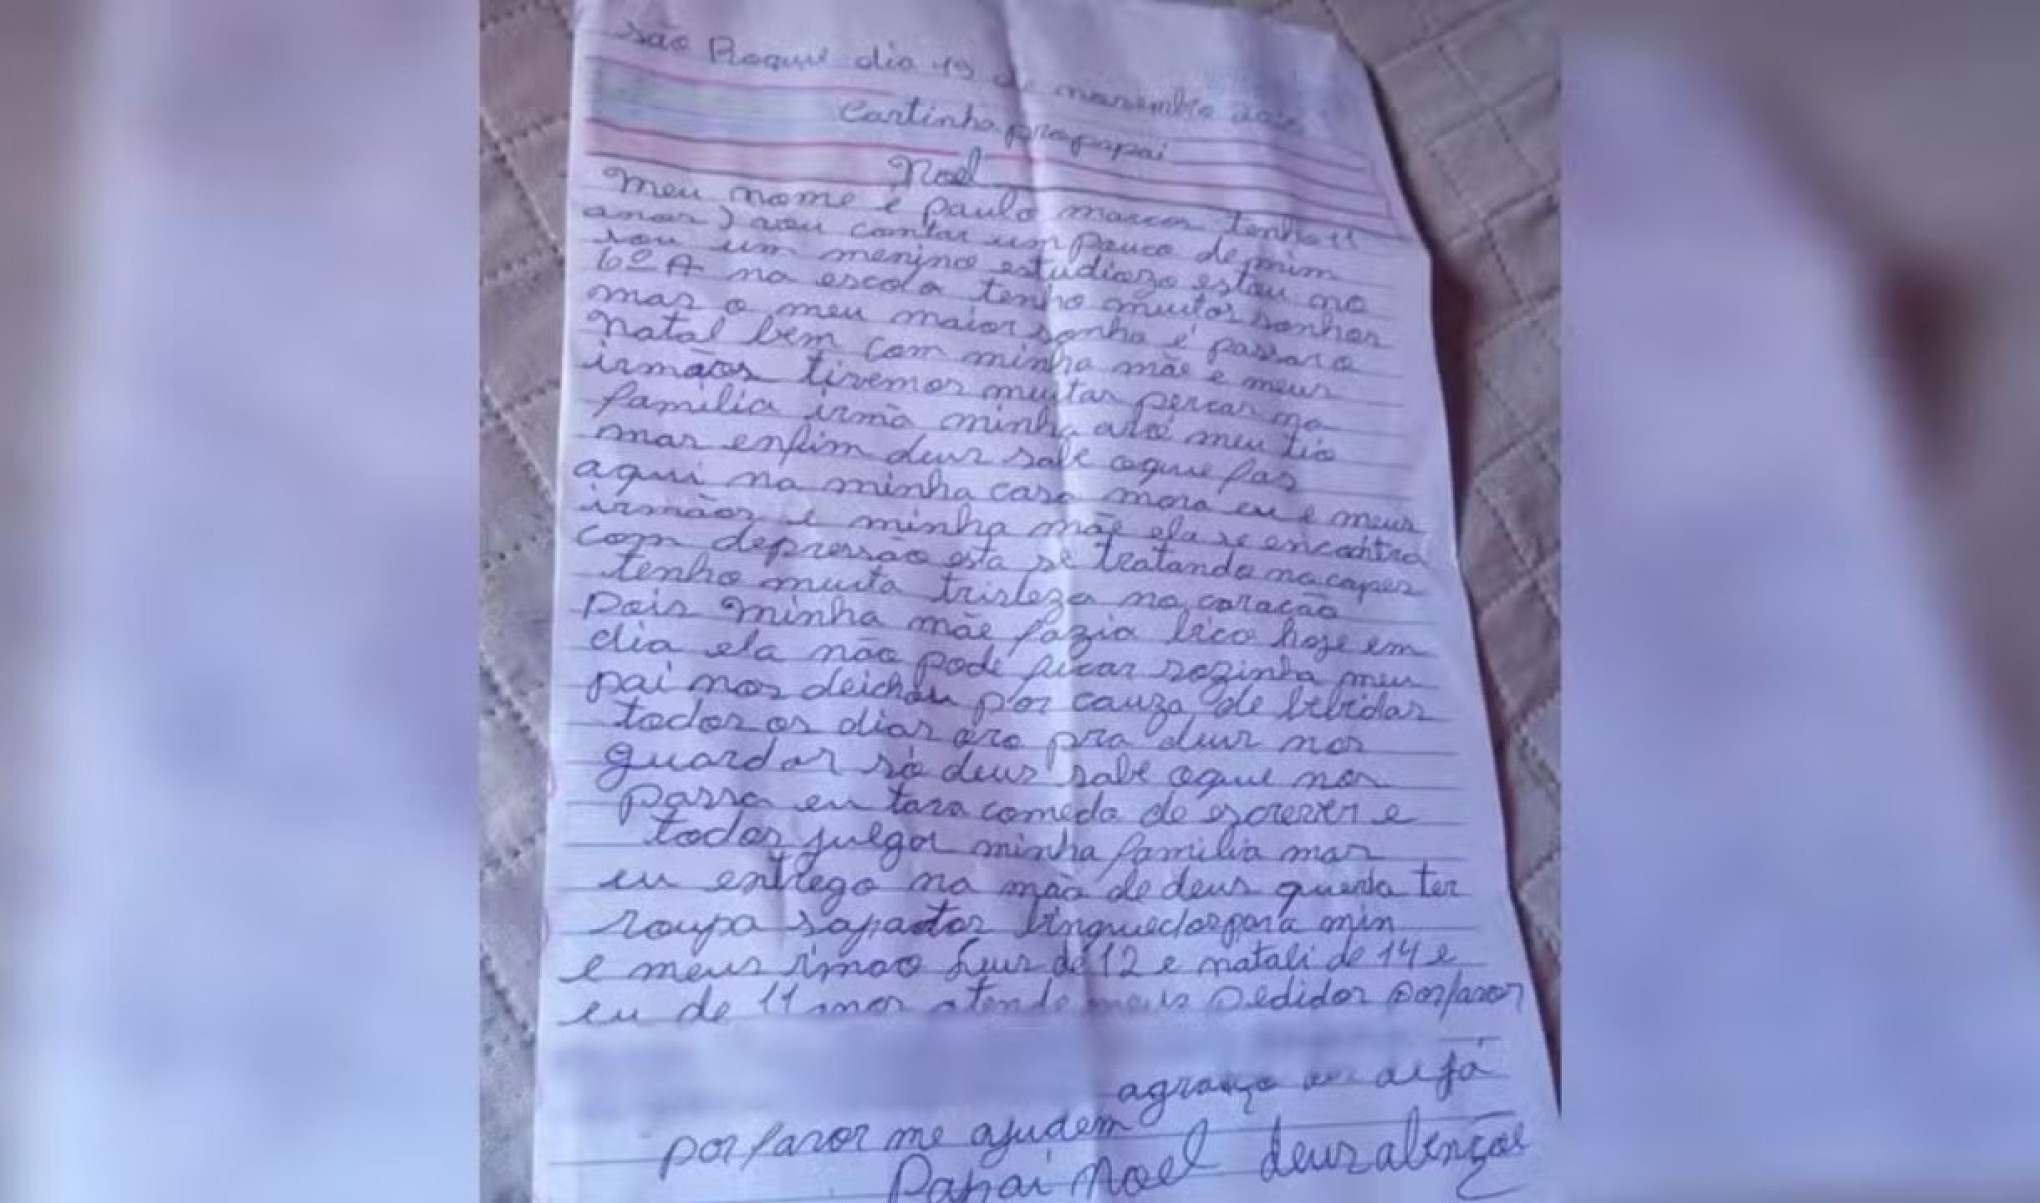 São Roque dia 19 de novembro
Cartinha pra papai
Noel
Meu nome e paulo marcos tenho 11
anos) vou contar um pouco de mim
sou um menino estudiozo estou no
6º A na escola tenho muitos sonhos
mas o meu maior sonho é passar o
natal bem com minha mãe e meus
irmãos tivemos muitas percas na
familia irmã minha avó meu tio
mas enfim deus sabe oque fas
aqui na minha casa mora eu e meus
irmãos e minha mãe ela se encontra
com depressão esta se tratando na capes
tenho muita tristeza no coração
pois minha mãe fazia bico hoje em
dia ela não pode ficar sozinha meu
pai nos deichou por cauza de bebidas
todos os dias oro pra deus nos
guardar só deus sabe oque nos
passa eu tava comedo de escrever e
todos julgar minha familia mas
eu entrego na mão de deus queria ter
roupa sapatos binquedos para min
e meus irmão de 12 e natali de 14 e
eu de 11 anos atende meus pedidos por favor
por favor me ajudem
Papai Noel deus abençoe